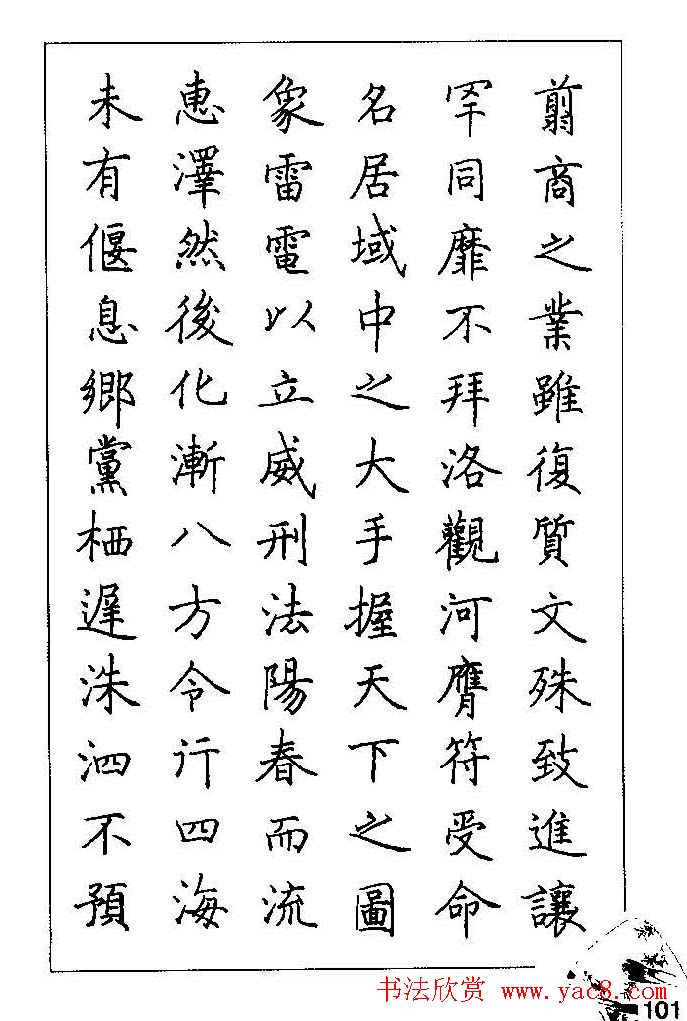 翦商之業雖復質文殊致進讓
罕同靡不拜洛觀河膺符受命
名居域中之大手握天下之圖
象雷電以立威刑法陽春而流
惠澤然後化漸八方令行四海
未有偃息鄉黨栖遲洙泗不預
书法欣赏 www.yac8.com
101